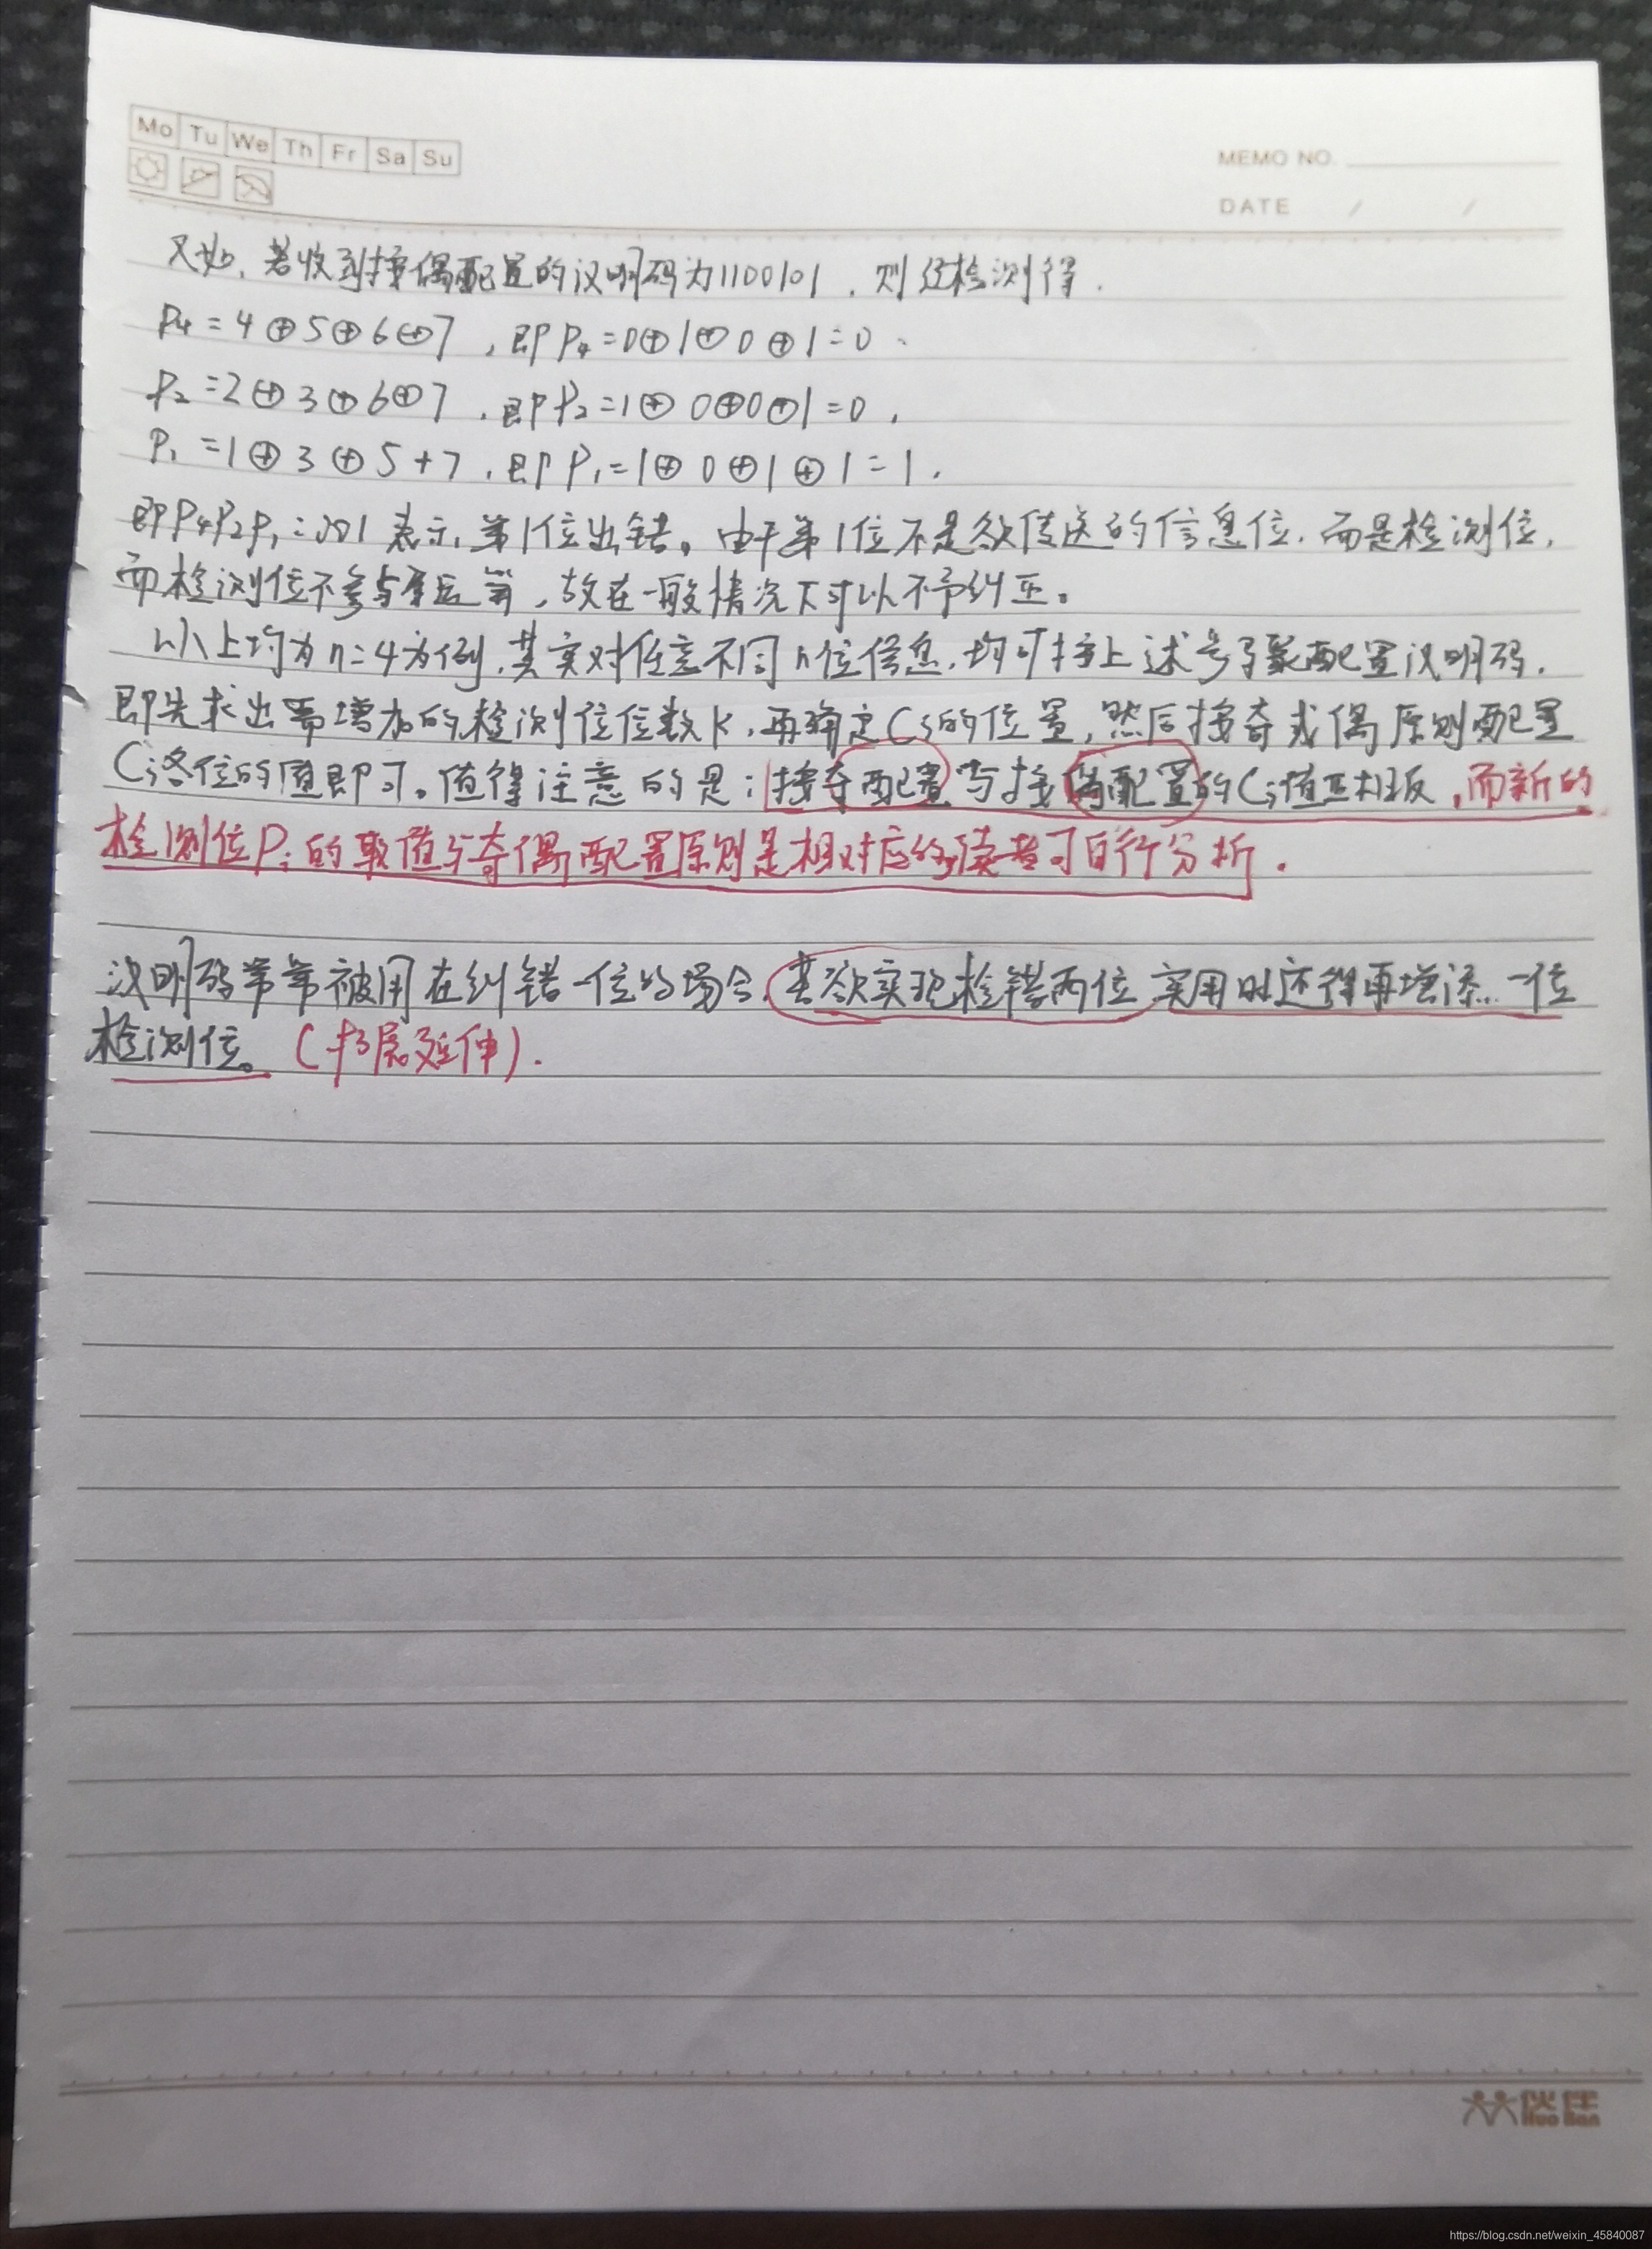 Mo Tu We Th Fr Sa Su
MEMO NO.
DATE / /
又如,若收到按偶配置的汉明码为1100101,则经检测得.
P₄=4⊕5⊕6⊕7,即P₄=0⊕1⊕0⊕1=0、
P₂=2⊕3⊕6⊕7,即P₂=1⊕0⊕0⊕1=0,
P₁=1⊕3⊕5+7,即P₁=1⊕0⊕1⊕1=1.
即P₄P₂P₁=001表示,第1位出错。由于第1位不是欲传送的信息位,而是检测位,
而检测位不参与运算,故在一般情况下可以不予纠正。
以上均为n=4为例,其实对任意不同n位信息,均可按上述步骤配置汉明码.
即先求出需增加的检测位位数k,再确定Cᵢ的位置,然后按奇或偶原则配置
Cᵢ各位的值即可。值得注意的是:按奇配置与按偶配置的Cᵢ值正相反,而新的
检测位Pᵢ的取值与奇偶配置原则是相对应的,读者可自行分析.
汉明码常常被用在纠错一位的场合,若欲实现检错两位实用时还得再增添一位
检测位。(书展延伸).
伙伴
Huo Ban
https://blog.csdn.net/weixin_45840087